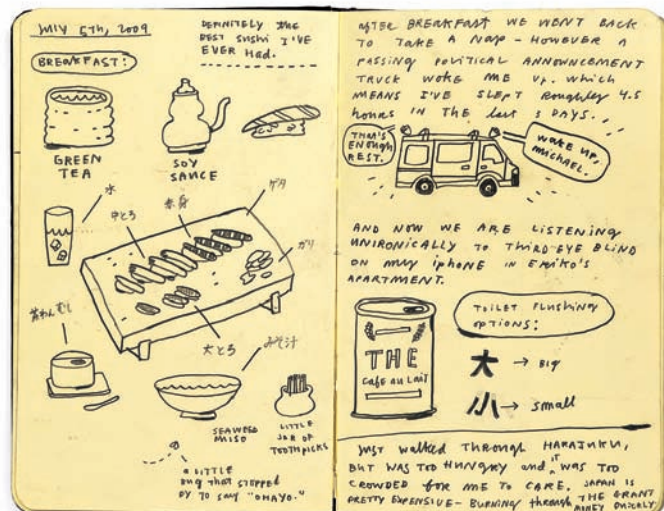 JULY 5TH, 2009
DEFINITELY the
BEST sushi I'VE
EVER Had.
BREAKFAST:
GREEN
TEA
SOY
SAUCE
水
中とろ
赤身
ゲタ
ガリ
茶わんむし
大とろ
みそ汁
SEAWEED
MISO
LITTLE
JAR OF
TOOTHPICKS
a LITTLE
BUG THAT STOPPED
BY TO SAY "OHAYO."
AFTER BREAKFAST WE WENT BACK
TO TAKE A NAP - HOWEVER A
PASSING POLITICAL ANNOUNCEMENT
TRUCK WOKE ME UP. which
MEANS I'VE SLEPT Roughly 4.5
hours IN THE last 3 DAYS.
THAT'S
ENOUGH
REST.
WAKE UP,
MICHAEL.
AND NOW WE ARE LISTENING
UNIRONICALLY TO THIRD EYE BLIND
ON MY iphone IN ERIKO'S
APARTMENT.
THE
Cafe au Lait
TOILET FLUSHING
OPTIONS:
大 → BIG
小 → small
JUST walked THROUGH HARAJUKU,
BUT WAS TOO HUNGRY and IT WAS TOO
CROWDED FOR ME TO CARE. JAPAN IS
PRETTY EXPENSIVE - BURNING through THE GRANT
MONEY QUICKLY.